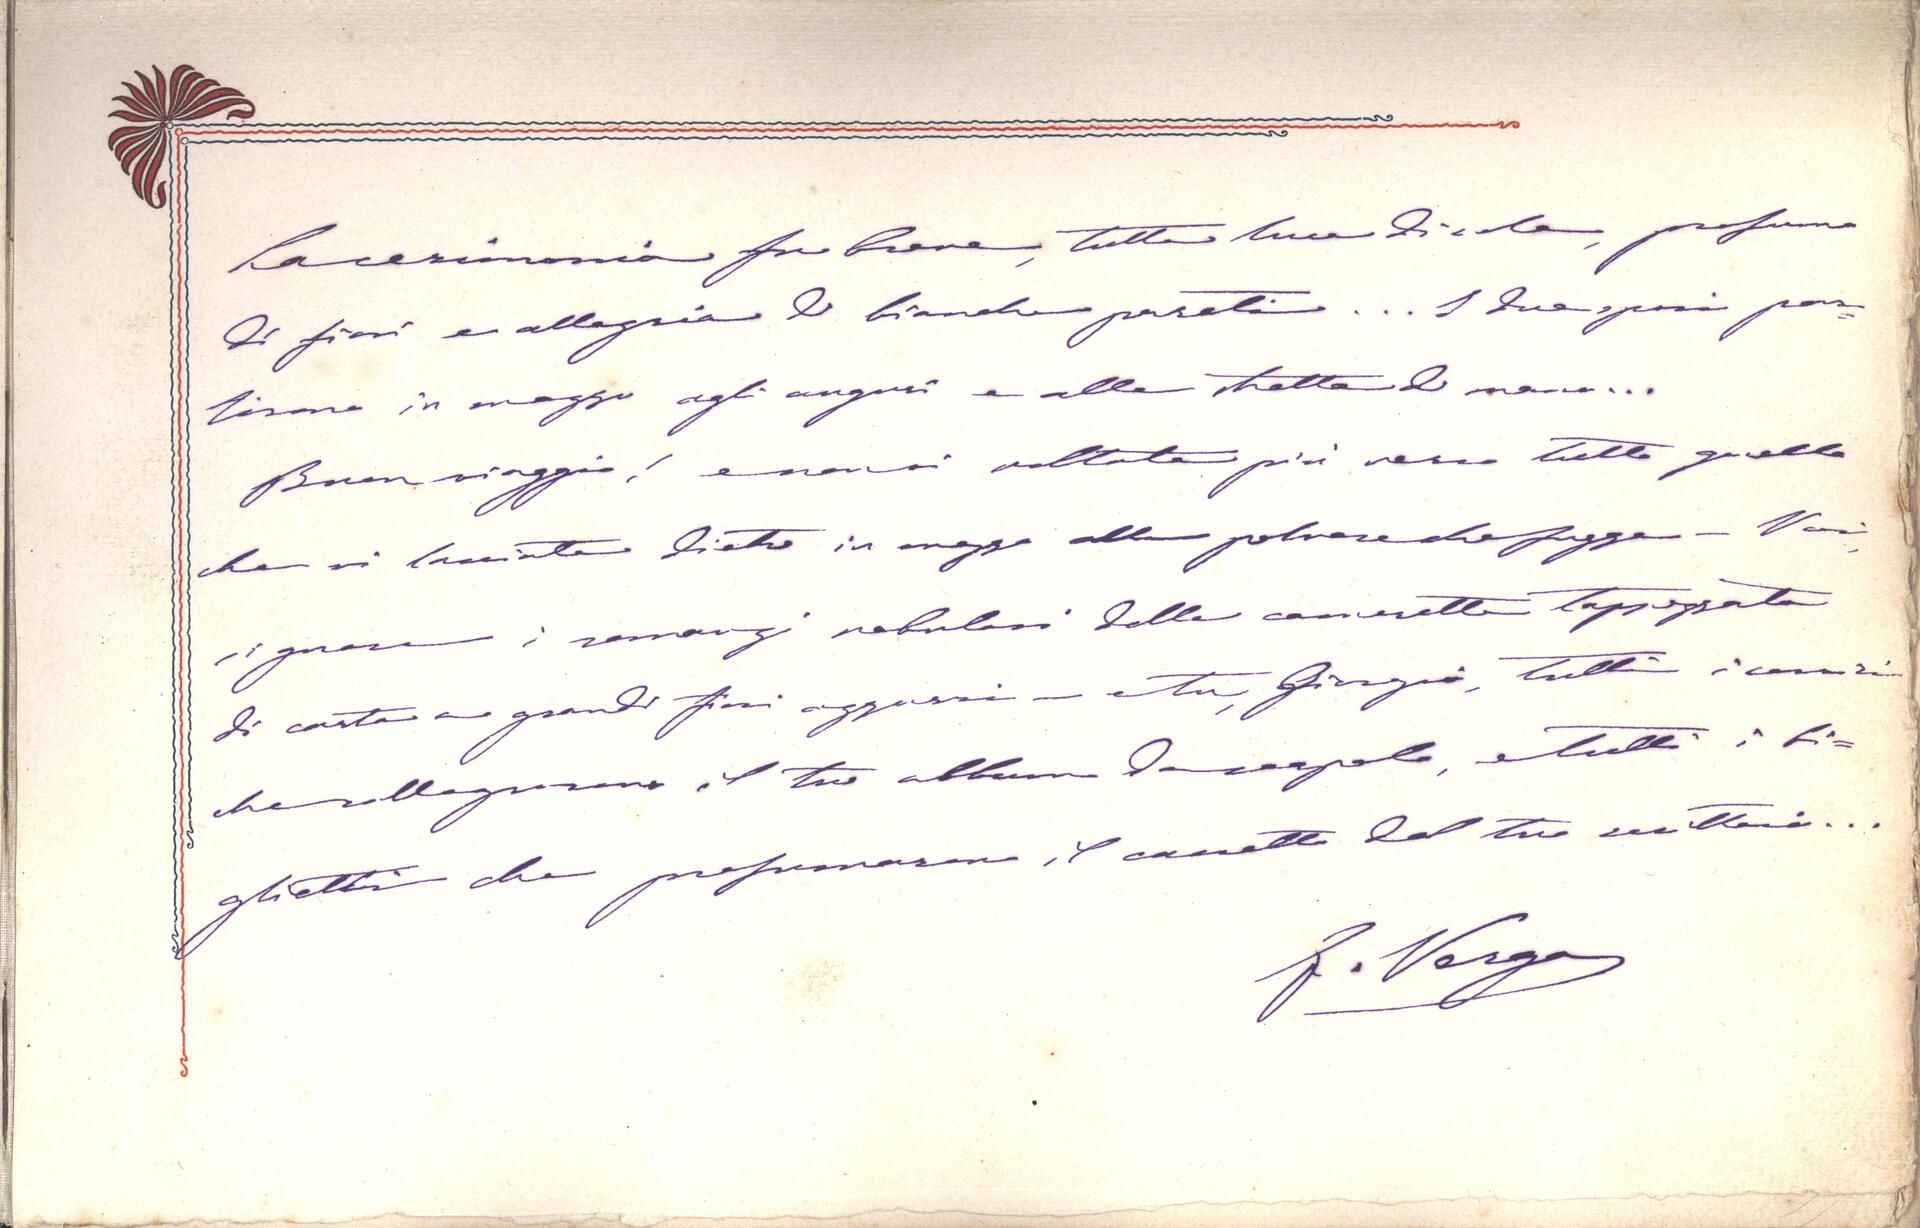 La cerimonia fu breve, tutta luce di sole, profumo
di fiori e allegria di bianche pareti... I due sposi par=
tirono in mezzo agli auguri e alle strette di mano...
Buon viaggio! e non vi voltate più verso tutto quello
che vi lasciate dietro in mezzo alla polvere che fugge — Voi,
signora i romanzi nebulosi della cameretta tappezzata
di carta a grandi fiori azzurri — e tu, Giorgio, tutti i
che rallegrarono il tuo album da scapolo, e tutti i bi=
glietti che profumarono il cassetto del tuo scrittoio...
G. Verga